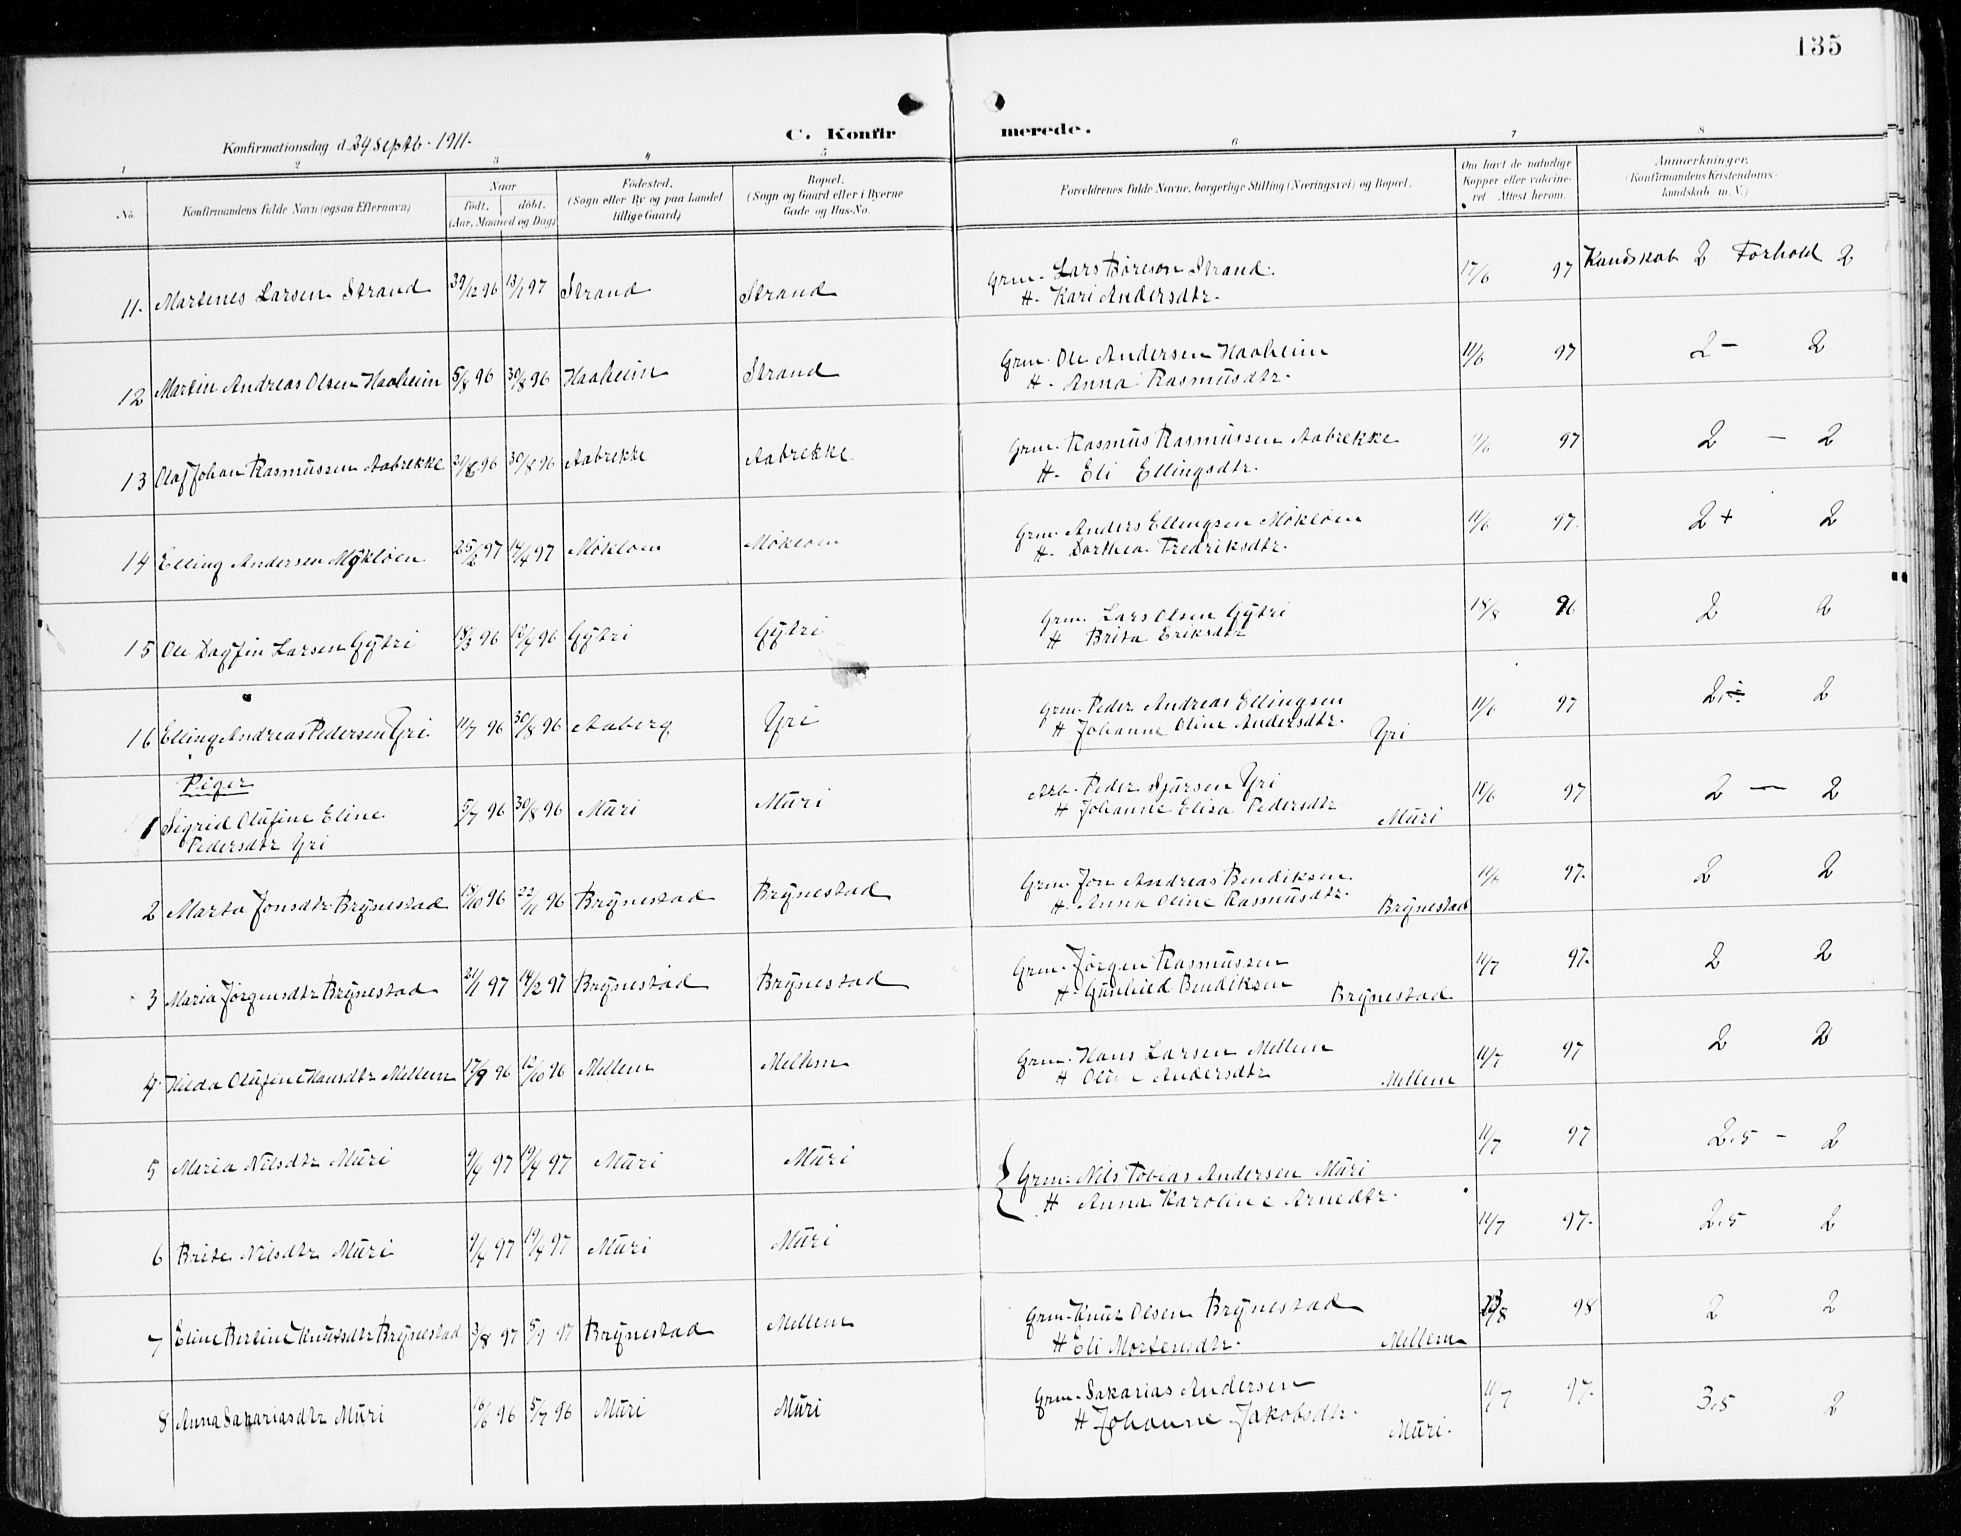 135
C. Konfirmerede.
Konfirmationsdag d. 24 Septb. 1911.
1 2 3 4 5 6 7 8
No. Konfirmandens fulde Navn (ogsaa Efternavn) Naar født. døbt. (Aar, Maaned og Dag) Fødested. (Sogn eller By og paa Landet tillige Gaard) Bopæl. (Sogn og Gaard eller i Byerne Gade og Hus-No. Forældrenes fulde Navne, borgerlige Stilling (Næringsvei) og Bopæl. Om havt de naturlige Kopper eller vakcineret Attest herom. Anmærkninger. (Konfirmandens Kristendomskundskab m. V.)
11. Martines Larsen Strand 96 13/1 97 Strand Strand Grm. Lars Børeson Strand. 17/6 97 Kundskab 2 Forhold 2
H. Kari Andersdtr.
12 Martin Andreas Olsen Haaheim 5/8 96 30/8 96 Haaheim Strand Grm. Ole Andersen Haaheim 11/6 97 2 – 2
H. Anna Rasmusdtr.
13 Olaf Johan Rasmussen Aabrekke 21/8 96 30/8 96 Aabrekke Aabrekke Grm. Rasmus Rasmussen Aabrekke 11/6 97 2 – 2
H. Eli Ellingsdtr.
14 Elling Andersen Mykløen 25/2 97 97 Mókløen Mókløen Grm. Anders Ellingsen Mókløen 11/6 97. 2 + 2
H. Dorthea Fredriksdtr.
15 Ole Dagfin Larsen Gÿtri 18/3 96 96 Gÿtri Gÿtri Grm. Lars Olsen Gÿtri 18/8 96 2 2
H Brita Eriksdtr
16 Elling Andreas Pedersen Yri 11/7 96 30/8 96 Aaberg Yri Grm. Peder Andreas Ellingsen 11/6 97 2 ÷ 2
H Johanne Oline Andersdtr. Yri
Piger
1 Sigrid Olufine Eline 5/7 96 30/8 96 Mūri Mūri Arb. Peder Sjursen Yri 97 2 – 2
Pedersdtr Yri H Johanne Elisa Pedersdtr Mūri
2 Marta Jonsdtr Brÿnestad 96 22/11 96 Brÿnestad Brÿnestad Grm. Jon Andreas Bendiksen 11/6 97. 2 2
H. Anna Oline Rasmusdtr. Brÿnestad
3 Maria Jørgensdtr Brÿnestad 21/1 97 14/2 97 Brÿnestad Brÿnestad Grm. Jørgen Rasmussen 11/7 97. 2 2
H. Gunhild Bendiksen Brÿnestad
4. Hilda Olufine Hansdtr Mellem 17/9 96 12/10 96 Mellem Mellem Grm. Hans Larsen Mellem 11/7 97 2 2
H Oline Andersdtr Mellem
5 Maria Nilsdtr Mūri 97 19/4 97 Mūri Mūri 11/7 97 2,5 – 2
Grm. Nils Tobias Andersen Mūri
H Anna Karoline Arnedtr.
6 Brite Nilsdtr Mūri 97 19/4 97 Mūri Mūri 11/7 97. 2,5 2
7 Eline Bertine Knutsdtr Brÿnestad 3/8 97 5/9 97 Brÿnestad Mellem Grm. Knut Olsen Brÿnestad 98 2 2
H Eli Mortensdtr. Mellem
8 Anna Sakariasdtr Mūri 16/6 96 5/7 96 Mūri Mūri Grm. Sakarias Andersen 11/7 97. 3,5 2
H Johanne Jakobsdtr. Mūri.